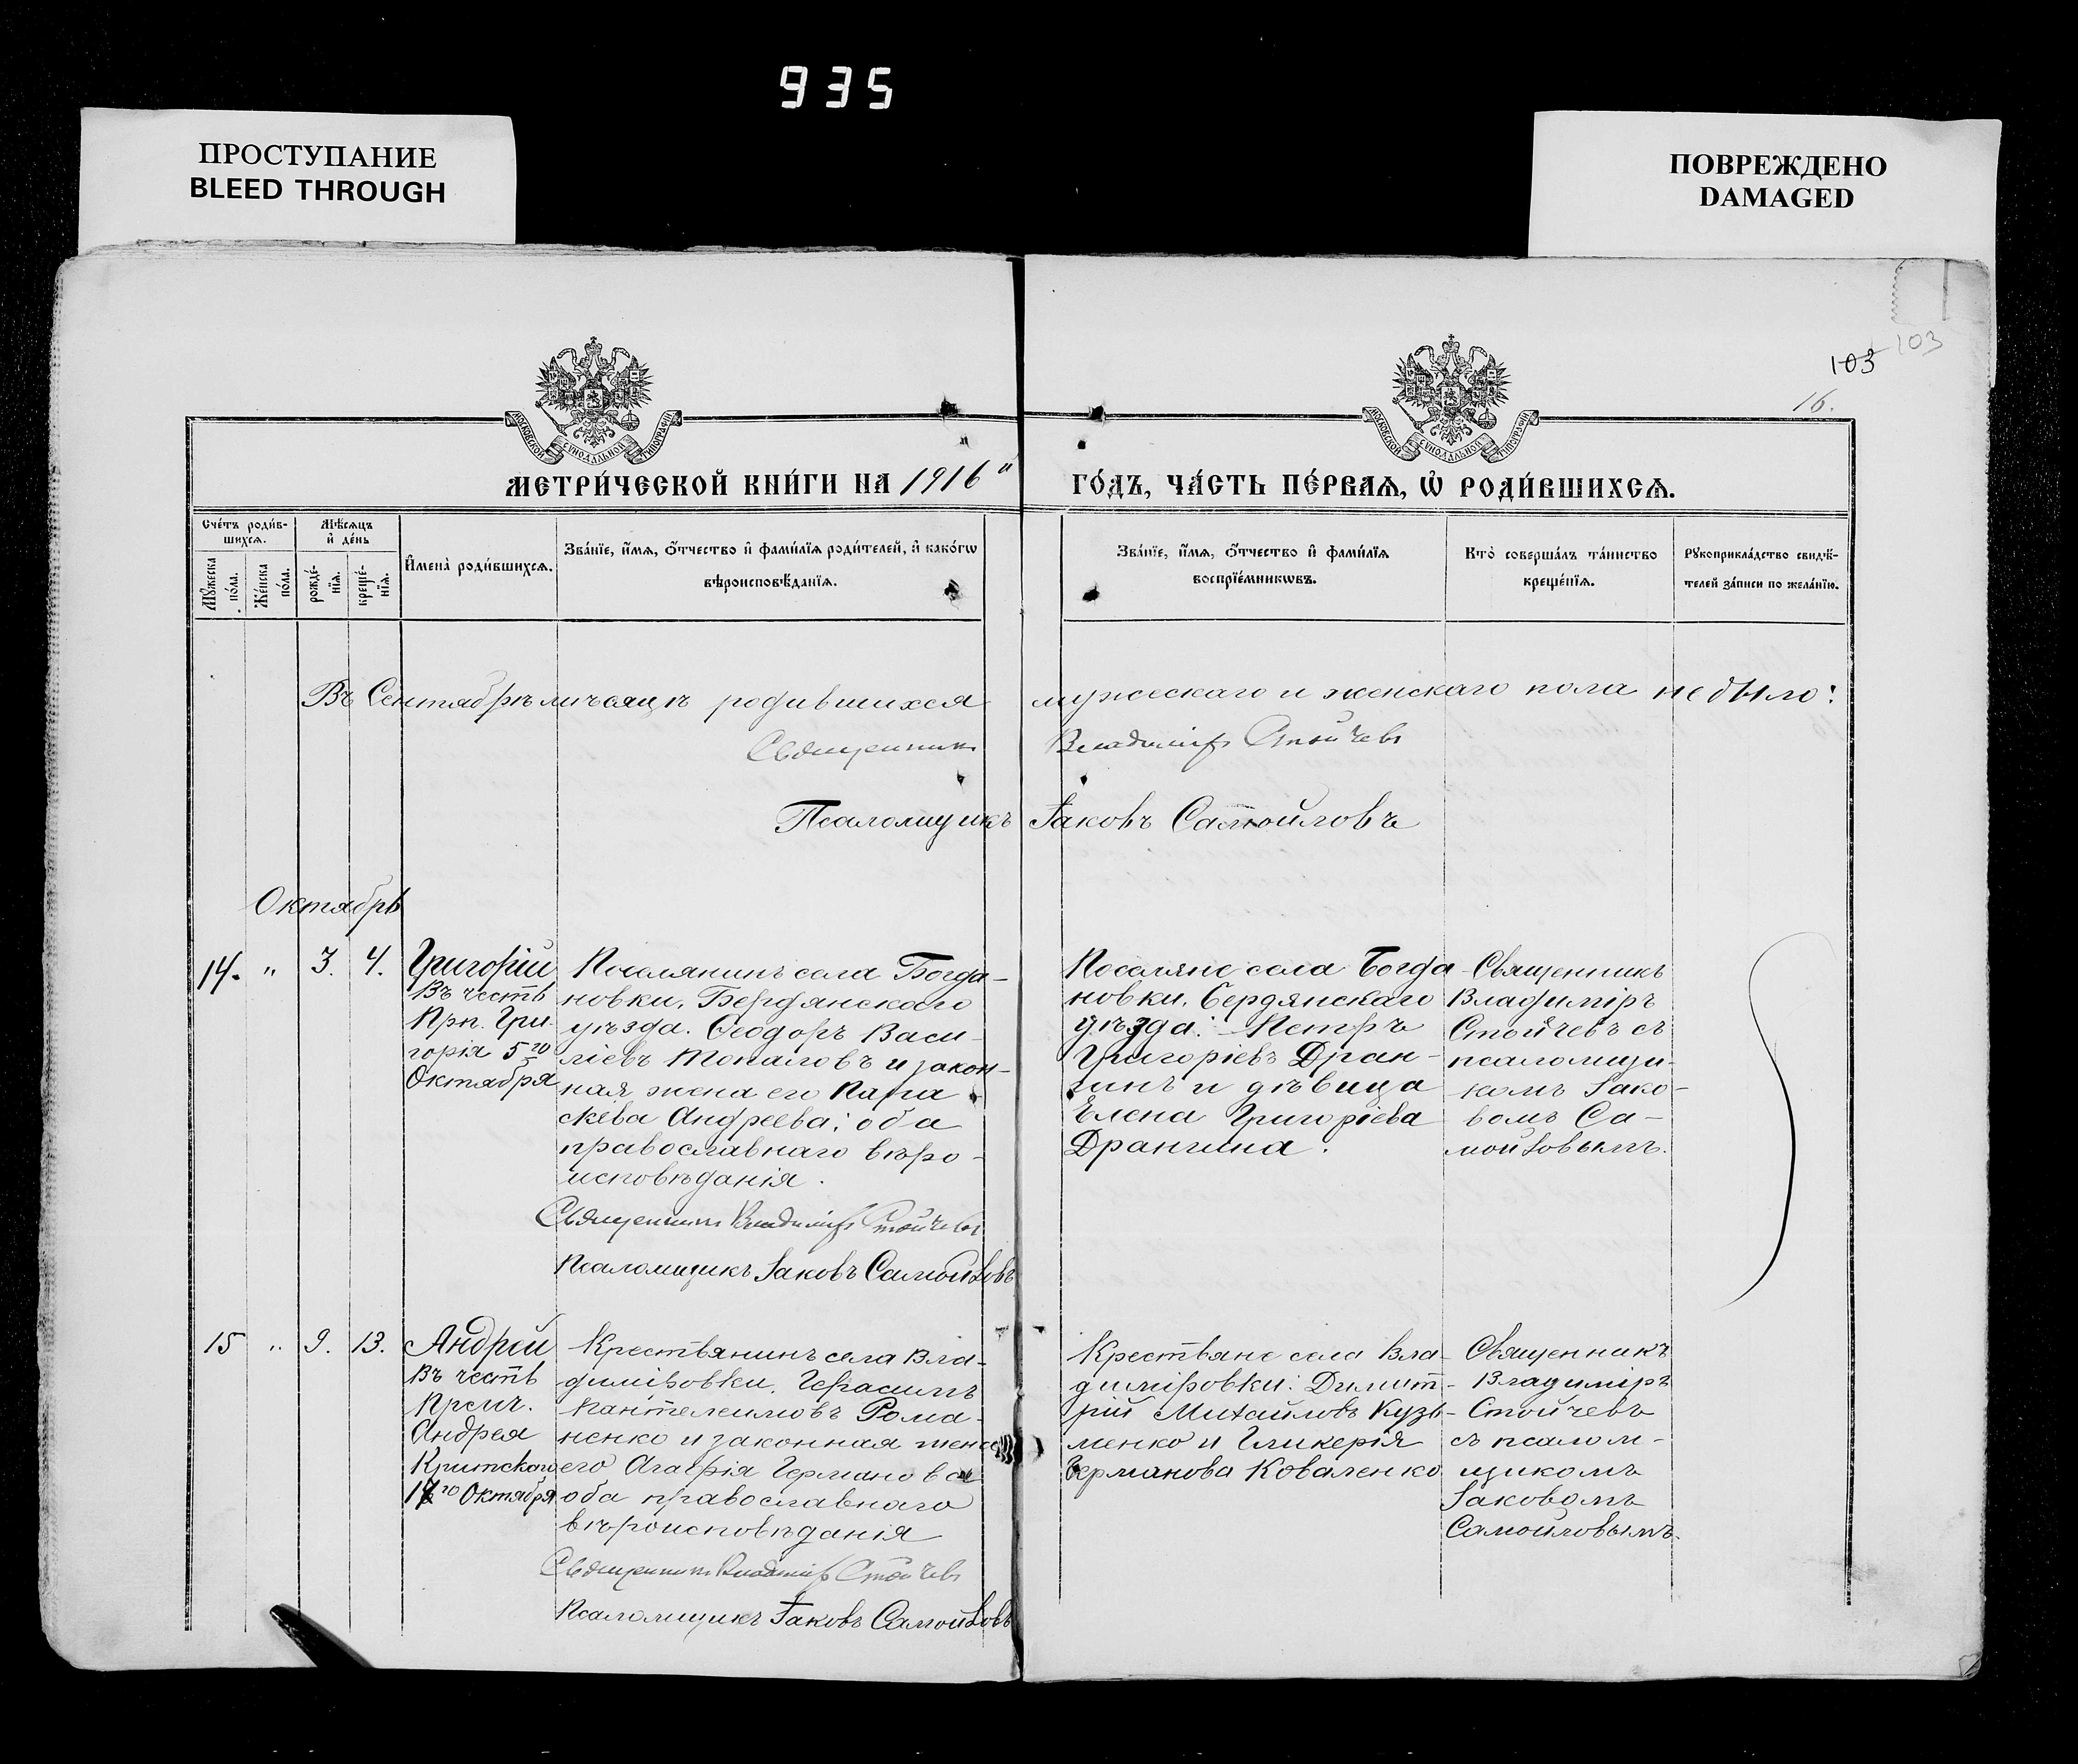 935
ПРОСТУПАНИЕ
BLEED THROUGH
ПОВРЕЖДЕНО
DAMAGED
103 103
16.
МОСКОВСКОЙ СУНОДАЛЬНОЙ ТИПОГРАФІИ
МОСКОВСКОЙ СУНОДАЛЬНОЙ ТИПОГРАФІИ
МЕТРИ́ЧЕСКОЙ КНИ́ГИ НА 1916" ГО́ДЪ, ЧА́СТЬ ПЕ́РВАѦ, Ѡ҆ РОДИ́ВШИХСѦ.
Сче́тъ роди́в-
шихсѧ.
Мꙋ́жеска по́ла.
Же́нска по́ла.
Мѣ́сѧцъ
и҆ де́нь
рожде́-
нїѧ.
креще́-
нїѧ.
И҆мена̀ роди́вшихсѧ.
Зва́нїе, и҆́мѧ, ѻ҆́тчество и҆ фами́лїѧ роди́телей, и҆ како́гѡ
вѣроисповѣ́данїѧ.
Зва́нїе, и҆́мѧ, ѻ҆́тчество и҆ фами́лїѧ
воспрїе́мникѡвъ.
Кто̀ соверша́лъ та́инство
креще́нїѧ.
Рꙋкоприкла́дство свидѣ́-
телей за́писи по жела́нїю.
Въ Сентябрѣ мѣсяцѣ родившихся мужескаго и женскаго пола не было:
Священникъ Владиміръ Стойчевъ
Псаломщикъ Іаковъ Самойловъ
Октябрь
14. " 3. 4.
Григорій
Въ честь
Прп. Гри-
горія 5го
Октября
Поселянинъ села Богда-
новки, Бердянскаго
уѣзда. Ѳеодоръ Васи-
ліевъ Топаловъ и закон-
ная жена его Пара-
скева Андреева; оба
православнаго вѣро-
исповѣданія.
Священникъ Владиміръ Стойчевъ
Псаломщикъ Іаковъ Самойловъ
Поселяне села Богда-
новки, Бердянскаго
уѣзда: Петръ
Григоріевъ Дран-
гинъ и дѣвица
Елена Григоріева
Драгнина.
Священникъ
Владиміръ
Стойчевъ съ
псаломщи-
комъ Іако-
вомъ Са-
мойловымъ.
15 " 9. 13.
Андрей
Въ честь
Прмч.
Андрея
Критскаго
17го Октября
Крестьянинъ села Вла-
диміровки, Герасимъ
Пантелеимовъ Рома-
ненко и законная жена
его Агафія Германова
оба православнаго
вѣроисповѣданія
Священникъ Владиміръ Стойчевъ
Псаломщикъ Іаковъ Самойловъ
Крестьяне села Вла-
диміровки: Димит-
рій Михайловъ Кузь-
менко и Гликерія
Германова Коваленко
Священникъ
Владиміръ
Стойчевъ
съ псалом-
щикомъ
Іаковомъ
Самойловымъ.